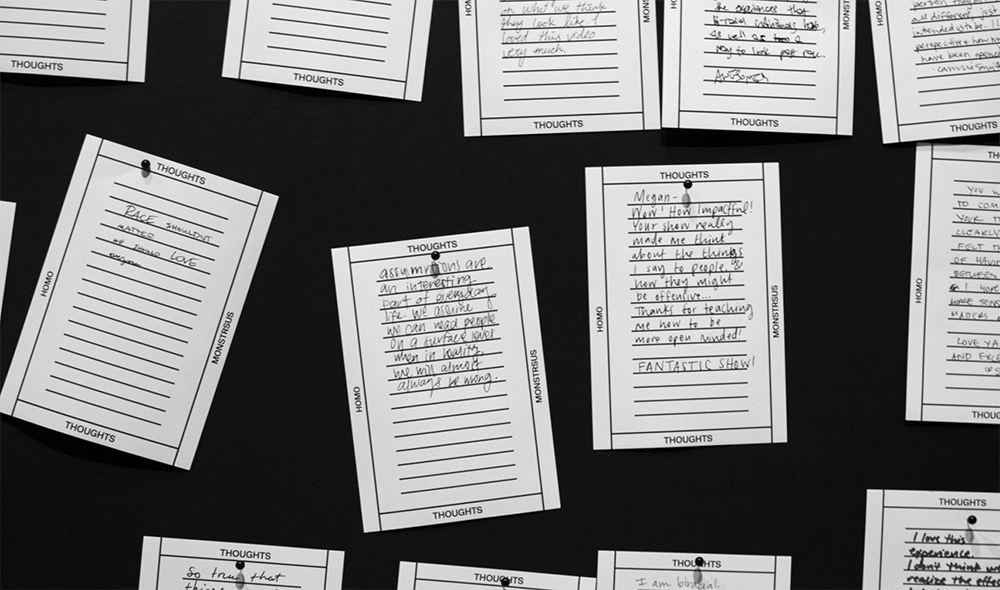 THOUGHTS
THOUGHTS
on what we think
they look like. I
loved this video
very much.
THOUGHTS
MONSTRSUS
HOMO
the experiences that
bi-racial individuals have
as well as
way to look past race.
Awesome
THOUGHTS
MONSTRSUS
HOMO
person they
all different, just
intended to be. I
perspective & how
have been opened
THOUGHTS
THOUGHTS
RACE SHOULDN'T
MATTER
WE SHOULD LOVE
HOMO
MONSTRSUS
THOUGHTS
THOUGHTS
assumptions are
an interesting
part of everyday
life. We assume
we can read people
on a surface level
when in reality,
we will almost
always be wrong.
HOMO
MONSTRSUS
THOUGHTS
THOUGHTS
Megan-
Wow! How Impactful!
Your show really
made me think
about the things
I say to people, &
how they might
be offensive...
Thanks for teaching
me how to be
more open minded!
FANTASTIC SHOW!
HOMO
MONSTRSUS
THOUGHTS
THOUGHTS
YOU
TO
YOUR
CLEARLY
FELT
OF
BETWEEN
I HOPE
SENS
LOVE YA
AND
HOMO
THOUGHTS
THOUGHTS
So true that
THOUGHTS
THOUGHTS
I am biracial
THOUGHTS
I love this
experience.
I don't think we
realize the